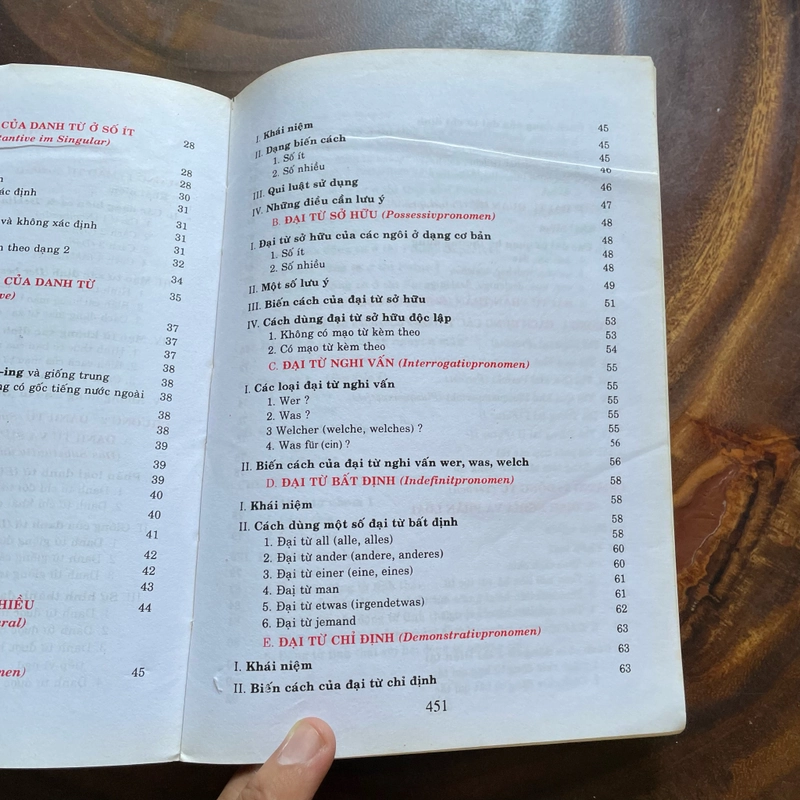 CỦA DANH TỪ Ở SỐ ÍT
tantive im Singular) 28
28
ác định 30
31
và không xác định 31
31
n theo dạng 2 31
32
CỦA DANH TỪ 34
ive) 35
37
37
37
-ing và giống trung 38
ng có gốc tiếng nước ngoài 38
38
38
39
39
39
40
40
41
42
42
43
HIỀU 44
ral)
men) 45
I. Khái niệm 45
II. Dạng biến cách 45
1. Số ít 45
2. Số nhiều 46
III. Qui luật sử dụng 46
IV. Những điều cần lưu ý 47
B. ĐẠI TỪ SỞ HỮU (Possessivpronomen) 48
I. Đại từ sở hữu của các ngôi ở dạng cơ bản 48
1. Số ít 48
2. Số nhiều 48
II. Một số lưu ý 49
III. Biến cách của đại từ sở hữu 51
IV. Cách dùng đại từ sở hữu độc lập 53
1. Không có mạo từ kèm theo 53
2. Có mạo từ kèm theo 54
C. ĐẠI TỪ NGHI VẤN (Interrogativpronomen) 55
I. Các loại đại từ nghi vấn 55
1. Wer ? 55
2. Was ? 55
3 Welcher (welche, welches) ? 55
4. Was für (cin) ? 56
II. Biến cách của đại từ nghi vấn wer, was, welch 56
D. ĐẠI TỪ BẤT ĐỊNH (Indefinitpronomen) 58
I. Khái niệm 58
II. Cách dùng một số đại từ bất định 58
1. Đại từ all (alle, alles) 58
2. Đại từ ander (andere, anderes) 60
3. Đại từ einer (eine, eines) 60
4. Đaị từ man 61
5. Đại từ etwas (irgendetwas) 61
6. Đại từ jemand 62
E. ĐẠI TỪ CHỈ ĐỊNH (Demonstrativpronomen) 63
I. Khái niệm 63
II. Biến cách của đại từ chỉ định 63
451